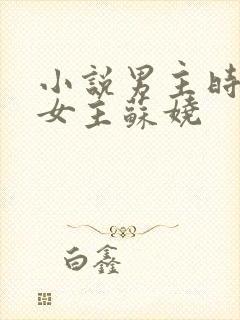 小說男主時
女主蘇嬈
白鑫